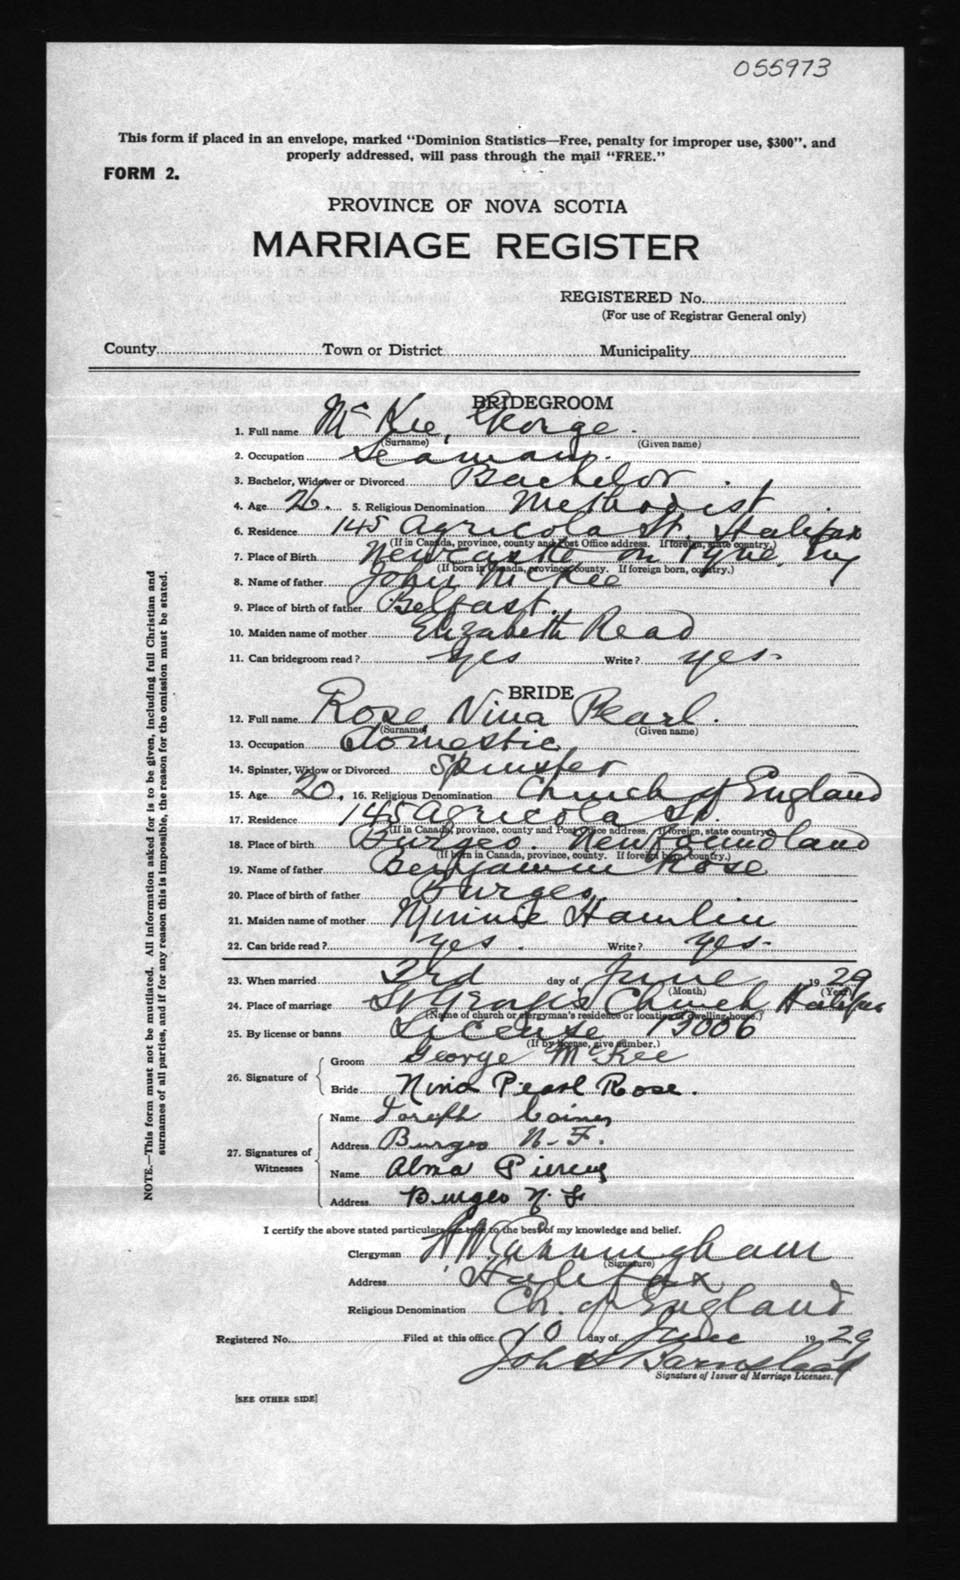 055973
This form if placed in an envelope, marked "Dominion Statistics—Free, penalty for improper use, $300", and
properly addressed, will pass through the mail "FREE."
FORM 2.
PROVINCE OF NOVA SCOTIA
MARRIAGE REGISTER
REGISTERED No.
(For use of Registrar General only)
County Town or District Municipality
BRIDEGROOM
1. Full name McKee, George.
(Surname) (Given name)
2. Occupation Seaman.
3. Bachelor, Widower or Divorced Bachelor.
4. Age 26. 5. Religious Denomination Methodist
6. Residence 145 Agricola St. Halifax
(If in Canada, province, county and Post Office address. If foreign, state country.)
7. Place of Birth Newcastle on Tyne, Eng
(If born in Canada, province, county. If foreign born, country.)
8. Name of father John McKee
9. Place of birth of father Belfast.
10. Maiden name of mother Elizabeth Read
11. Can bridegroom read? yes Write? yes-
BRIDE
12. Full name Rose, Nina Pearl.
(Surname) (Given name)
13. Occupation domestic,
14. Spinster, Widow or Divorced Spinster
15. Age 20. 16. Religious Denomination Church of England
17. Residence 145 Agricola St.
(If in Canada, province, county and Post Office address. If foreign, state country.)
18. Place of birth Burgeo. Newfoundland
(If born in Canada, province, county. If foreign born, country.)
19. Name of father Benjamin Rose
20. Place of birth of father Burgeo
21. Maiden name of mother Minnie Hamlin
22. Can bride read? yes. Write? yes-
23. When married 3rd day of June 1929
(Month) (Year)
24. Place of marriage St George's Church Halifax
(Name of church or clergyman's residence or location of dwelling house.)
25. By license or banns License 13006
(If by license, give number.)
26. Signature of Groom George McKee
Bride Nina Pearl Rose.
27. Signatures of Witnesses
Name Joseph
Address Burgeo N.F.
Name Alma
Address Burgeo N.F
I certify the above stated particulars are true to the best of my knowledge and belief.
Clergyman Cunningham
(Signature)
Address Halifax
Religious Denomination Ch. of England
Registered No. Filed at this office 10 day of June 1929
John Barnstead
Signature of Issuer of Marriage Licenses.
[SEE OTHER SIDE]
NOTE.—This form must not be mutilated. All information asked for is to be given, including full Christian and
surnames of all parties, and if for any reason this is impossible, the reason for the omission must be stated.